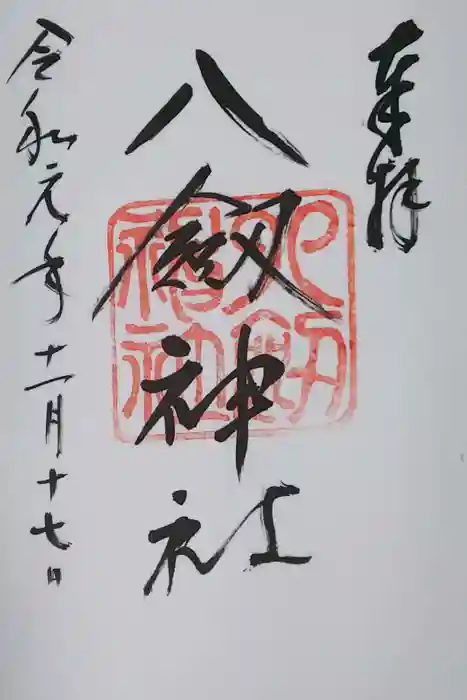 奉拝
八剱神社
八剱神社
令和元年十一月十七日